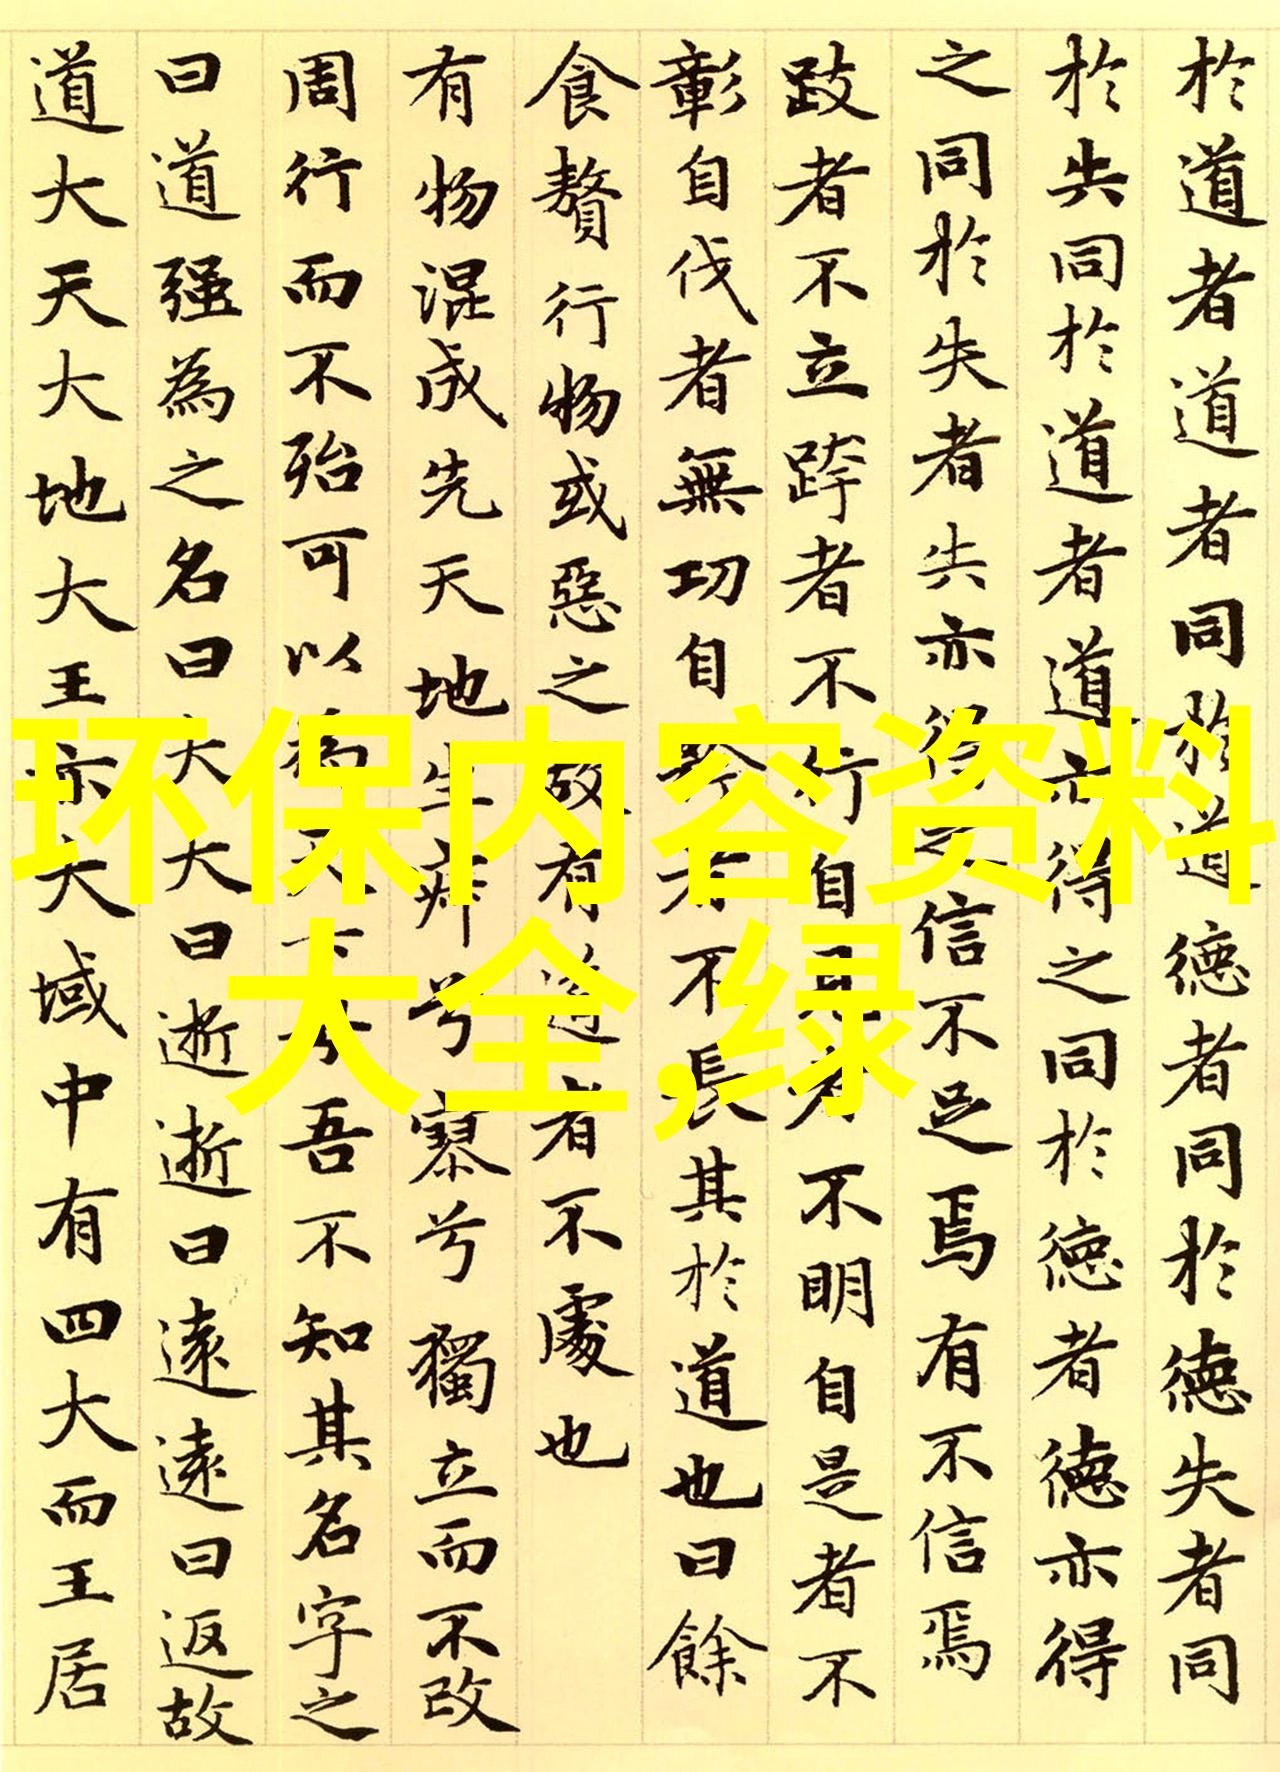 於道者道者同於道德者同於德失者同
於失同於道者道亦得之同於德者德亦得
之同於失者失亦得之信不足焉有不信焉
跂者不立跨者不行自見者不明自是者不
彰自伐者無功自矜者不長其於道也曰餘
食贅行物或惡之故有道者不處也
有物混成先天地生寂兮寥兮獨立而不改
周行而不殆可以為天下母吾不知其名字之
曰道强為之名曰大大曰逝逝曰遠遠曰返故
道大天大地大王亦大域中有四大而王居
环保内容资料
大全,绿